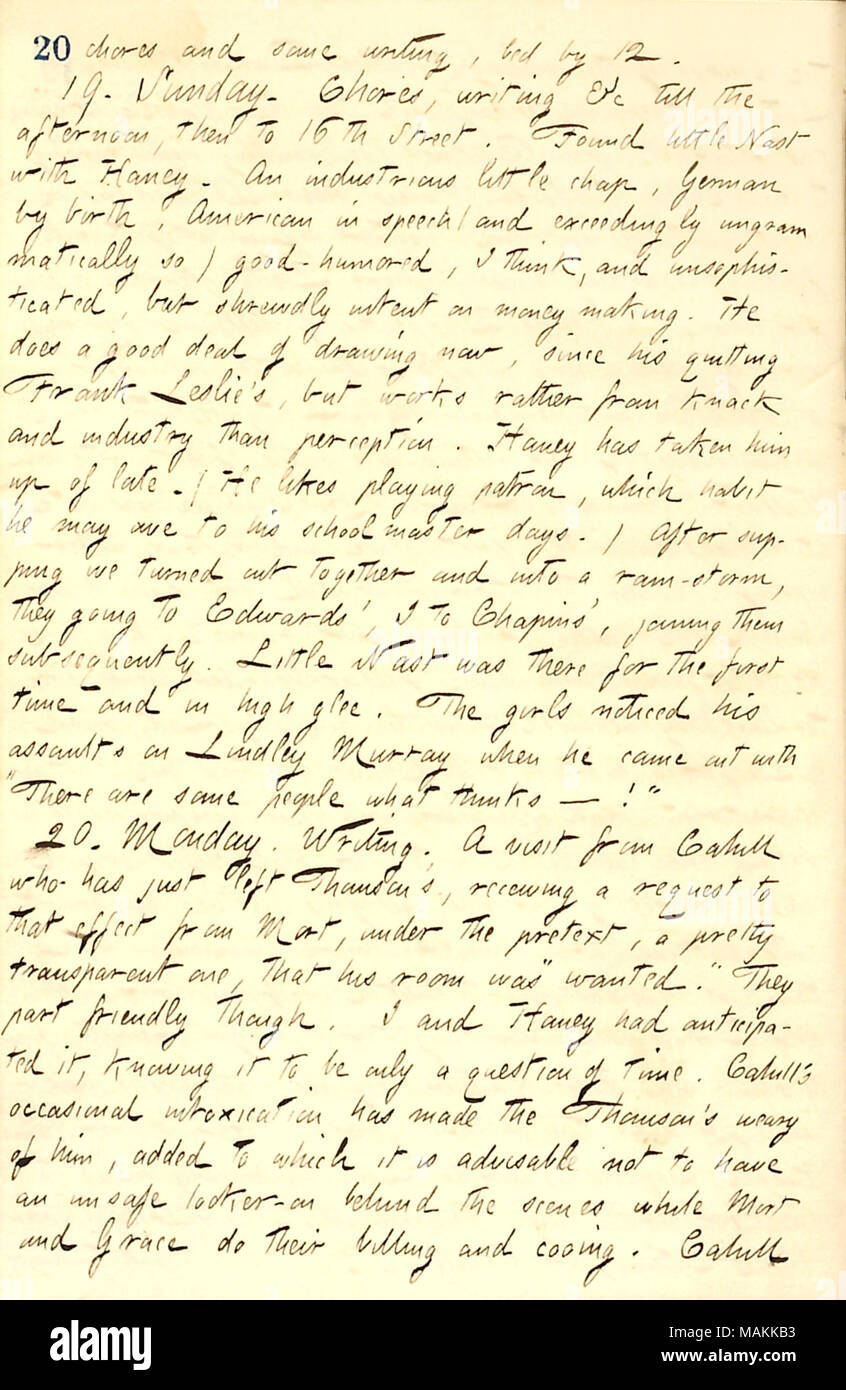 20 chores and some writing, bed by 12.
19. Sunday. Chores, writing &c till the
afternoon, then to 16th Street. Found little Nast
with Haney. An industrious little chap, German
by birth, American in speech (and exceedingly ungram
matically so) good-humored, I think, and unsophis-
ticated, but shrewdly intent on money making. He
does a good deal of drawing now, since his quitting
Frank Leslie's, but works rather from knack
and industry than perception. Haney has taken him
up of late. (He likes playing patron, which habit
he may owe to his schoolmaster days.) After sup-
ping we turned out together and into a rain-storm,
they going to Edwards', I to Chapins', joining them
subsequently. Little Nast was there for the first
time and in high glee. The girls noticed his
assaults on Lindley Murray when he came out with
"There are some people what thinks — !"
20. Monday. Writing. A visit from Cahill
who has just left Thomson's, receiving a request to
that effect from Mort, under the pretext, a pretty
transparent one, that his room was "wanted." They
part friendly though. I and Haney had anticipa-
ted it, knowing it to be only a question of time. Cahill's
occasional intoxication has made the Thomson's weary
of him, added to which it is advisable not to have
an unsafe looker-on behind the scenes while Mort
and Grace do their billing and cooing. Cahill
alamy
Image ID: MAKKB3
www.alamy.com